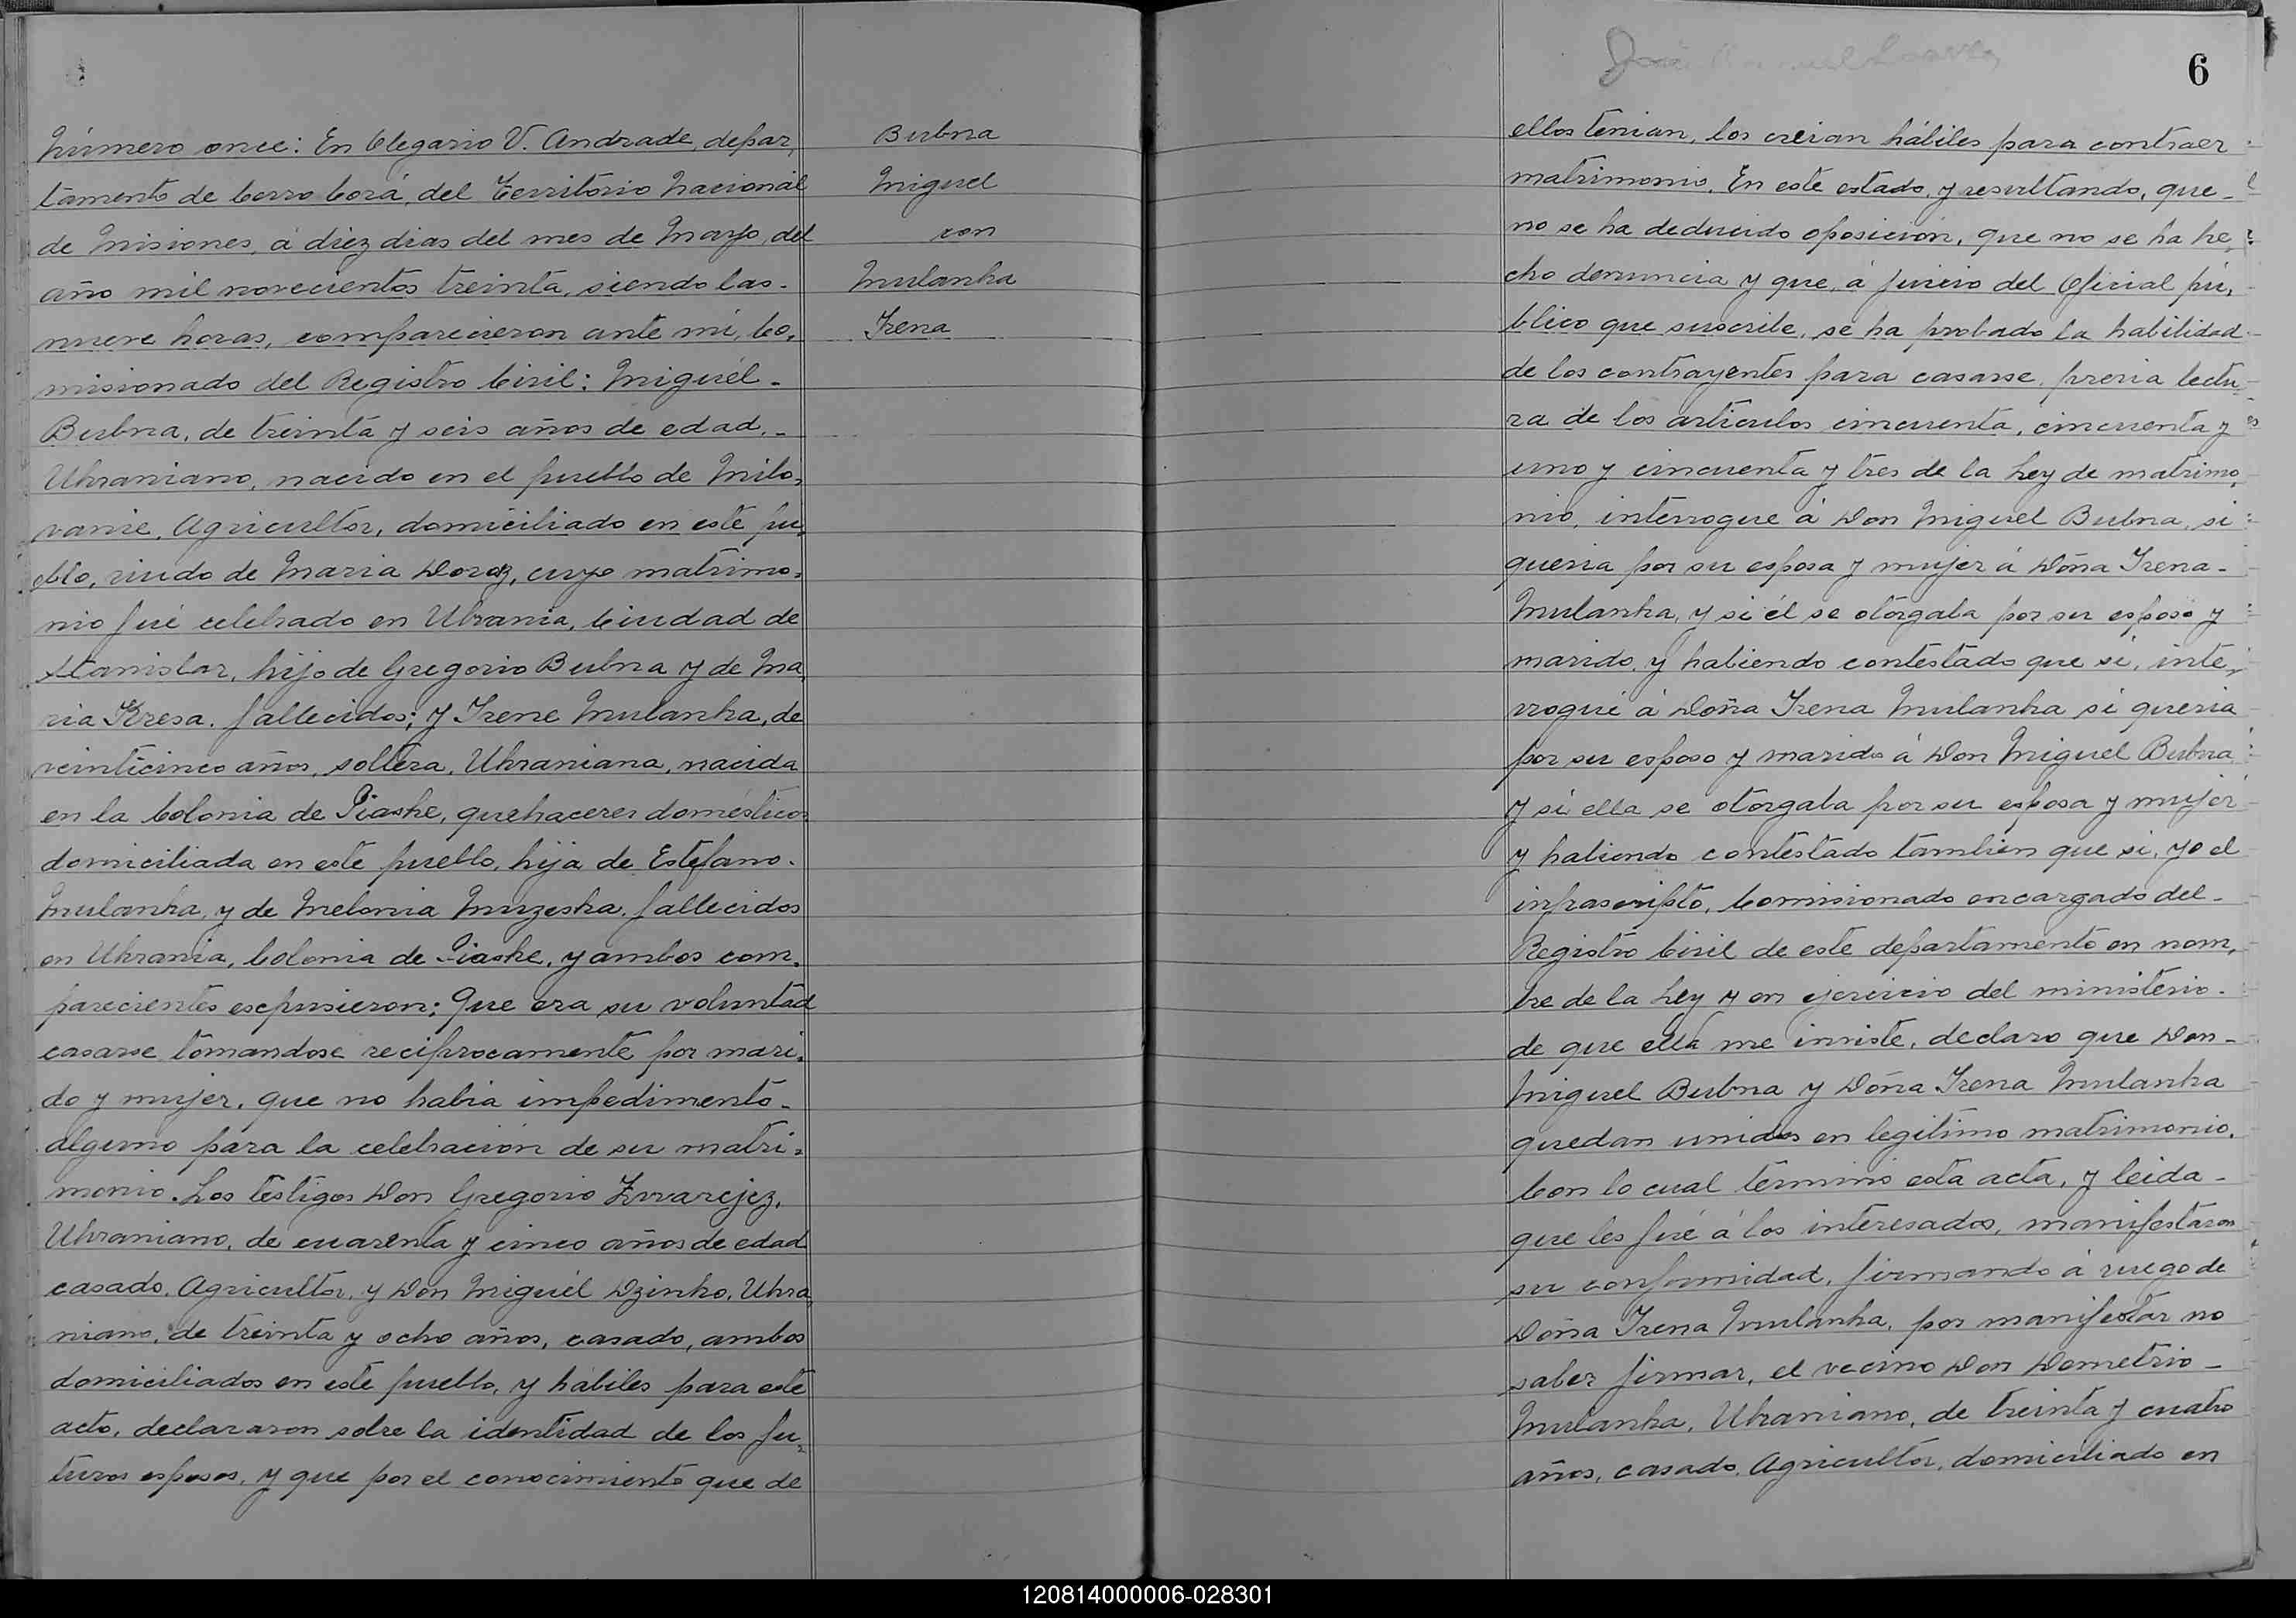 Número once: En Olegario V. Andrade, depar,
tamento de Cerro Corá, del Territorio Nacional
de Misiones, á diez dias del mes de Mayo, del
año mil novecientos treinta, siendo las-
nueve horas, comparecieron ante mi, Co,
misionado del Registro Civil: Miguél-
Bubna, de treinta y seis años de edad,-
Ukraniano, nacido en el pueblo de Milo,
vanie, Agricultor, domiciliado en este pu,
eblo, viudo de Maria Doroz, cuyo matrimo,
nio fué celebrado en Ukrania, Ciudad de
Stanislav, hijo de Gregorio Bubna y de Ma,
ria Kresa, fallecidos; y Irene Mulanka, de
veinticinco años, soltera, Ukraniana, nacida
en la Colonia de Piaske, quehaceres domésticos
domiciliada en este pueblo, hija de Estefano-
Mulanka, y de Melonia Muzeska, fallecidos
en Ukrania, Colonia de Piaske, y ambos com,
parecientes escpusieron; Que era su voluntad
casarse tomandose reciprocamente por mari,
do y mujer, que no habia impedimento-
alguno para la celebración de su matri,
monio. Los testigos Don Gregorio Zwarejez,
Ukraniano, de cuarenta y cinco años de edad
casado, Agricultor, y Don Miguél Dzinko, Ukra,
niano, de treinta y ocho años, casado, ambos
domiciliados en este pueblo, y hábiles para este
acto, declararon sobre la identidad de los fu,
turos esposos, y que por el conocimiento que de
Bubna
Miguel
con
Mulanka
Irena
6
ellos tenian, los creian hábiles para contraer
matrimonio. En este estado, y resultando, que-
no se ha deducido oposición, que no se ha he,
cho denuncia y que, á juicio del Oficial pú,
blico que suscribe, se ha probado la habilidad
de los contrayentes para casarse, previa lectu
ra de los articulos cincuenta, cincuenta y
uno y cincuenta y tres de la Ley de matrimo,
nio, interrogue á Don Miguel Bubna, si
queria por su esposa y mujer á Doña Irena-
Mulanka, y si él se otorgaba por su esposo y
marido, y habiendo contestado que si, inte,
rrogué á Doña Irena Mulanka si queria
por su esposo y marido á Don Miguel Bubna
y si ella se otorgaba por su esposa y mujer
y habiendo contestado tambien que si, yo el
infrascripto, Comisionado encargado del-
Registro Civil de este departamento en nom,
bre de la Ley y en ejercicio del ministerio-
de que ella me inviste, declaro que Don-
Miguel Bubna y Doña Irena Mulanka
quedan unidos en legitimo matrimonio.
Con lo cual terminó esta acta, y leida-
que les fué á los interesados, manifestaron
su conformidad, firmando á ruego de
Doña Irena Mulanka, por manifestar no
saber firmar, el vecino Don Demetrio-
Mulanka, Ukraniano, de treinta y cuatro
años, casado, Agricultor, domiciliado en
120814000006-028301